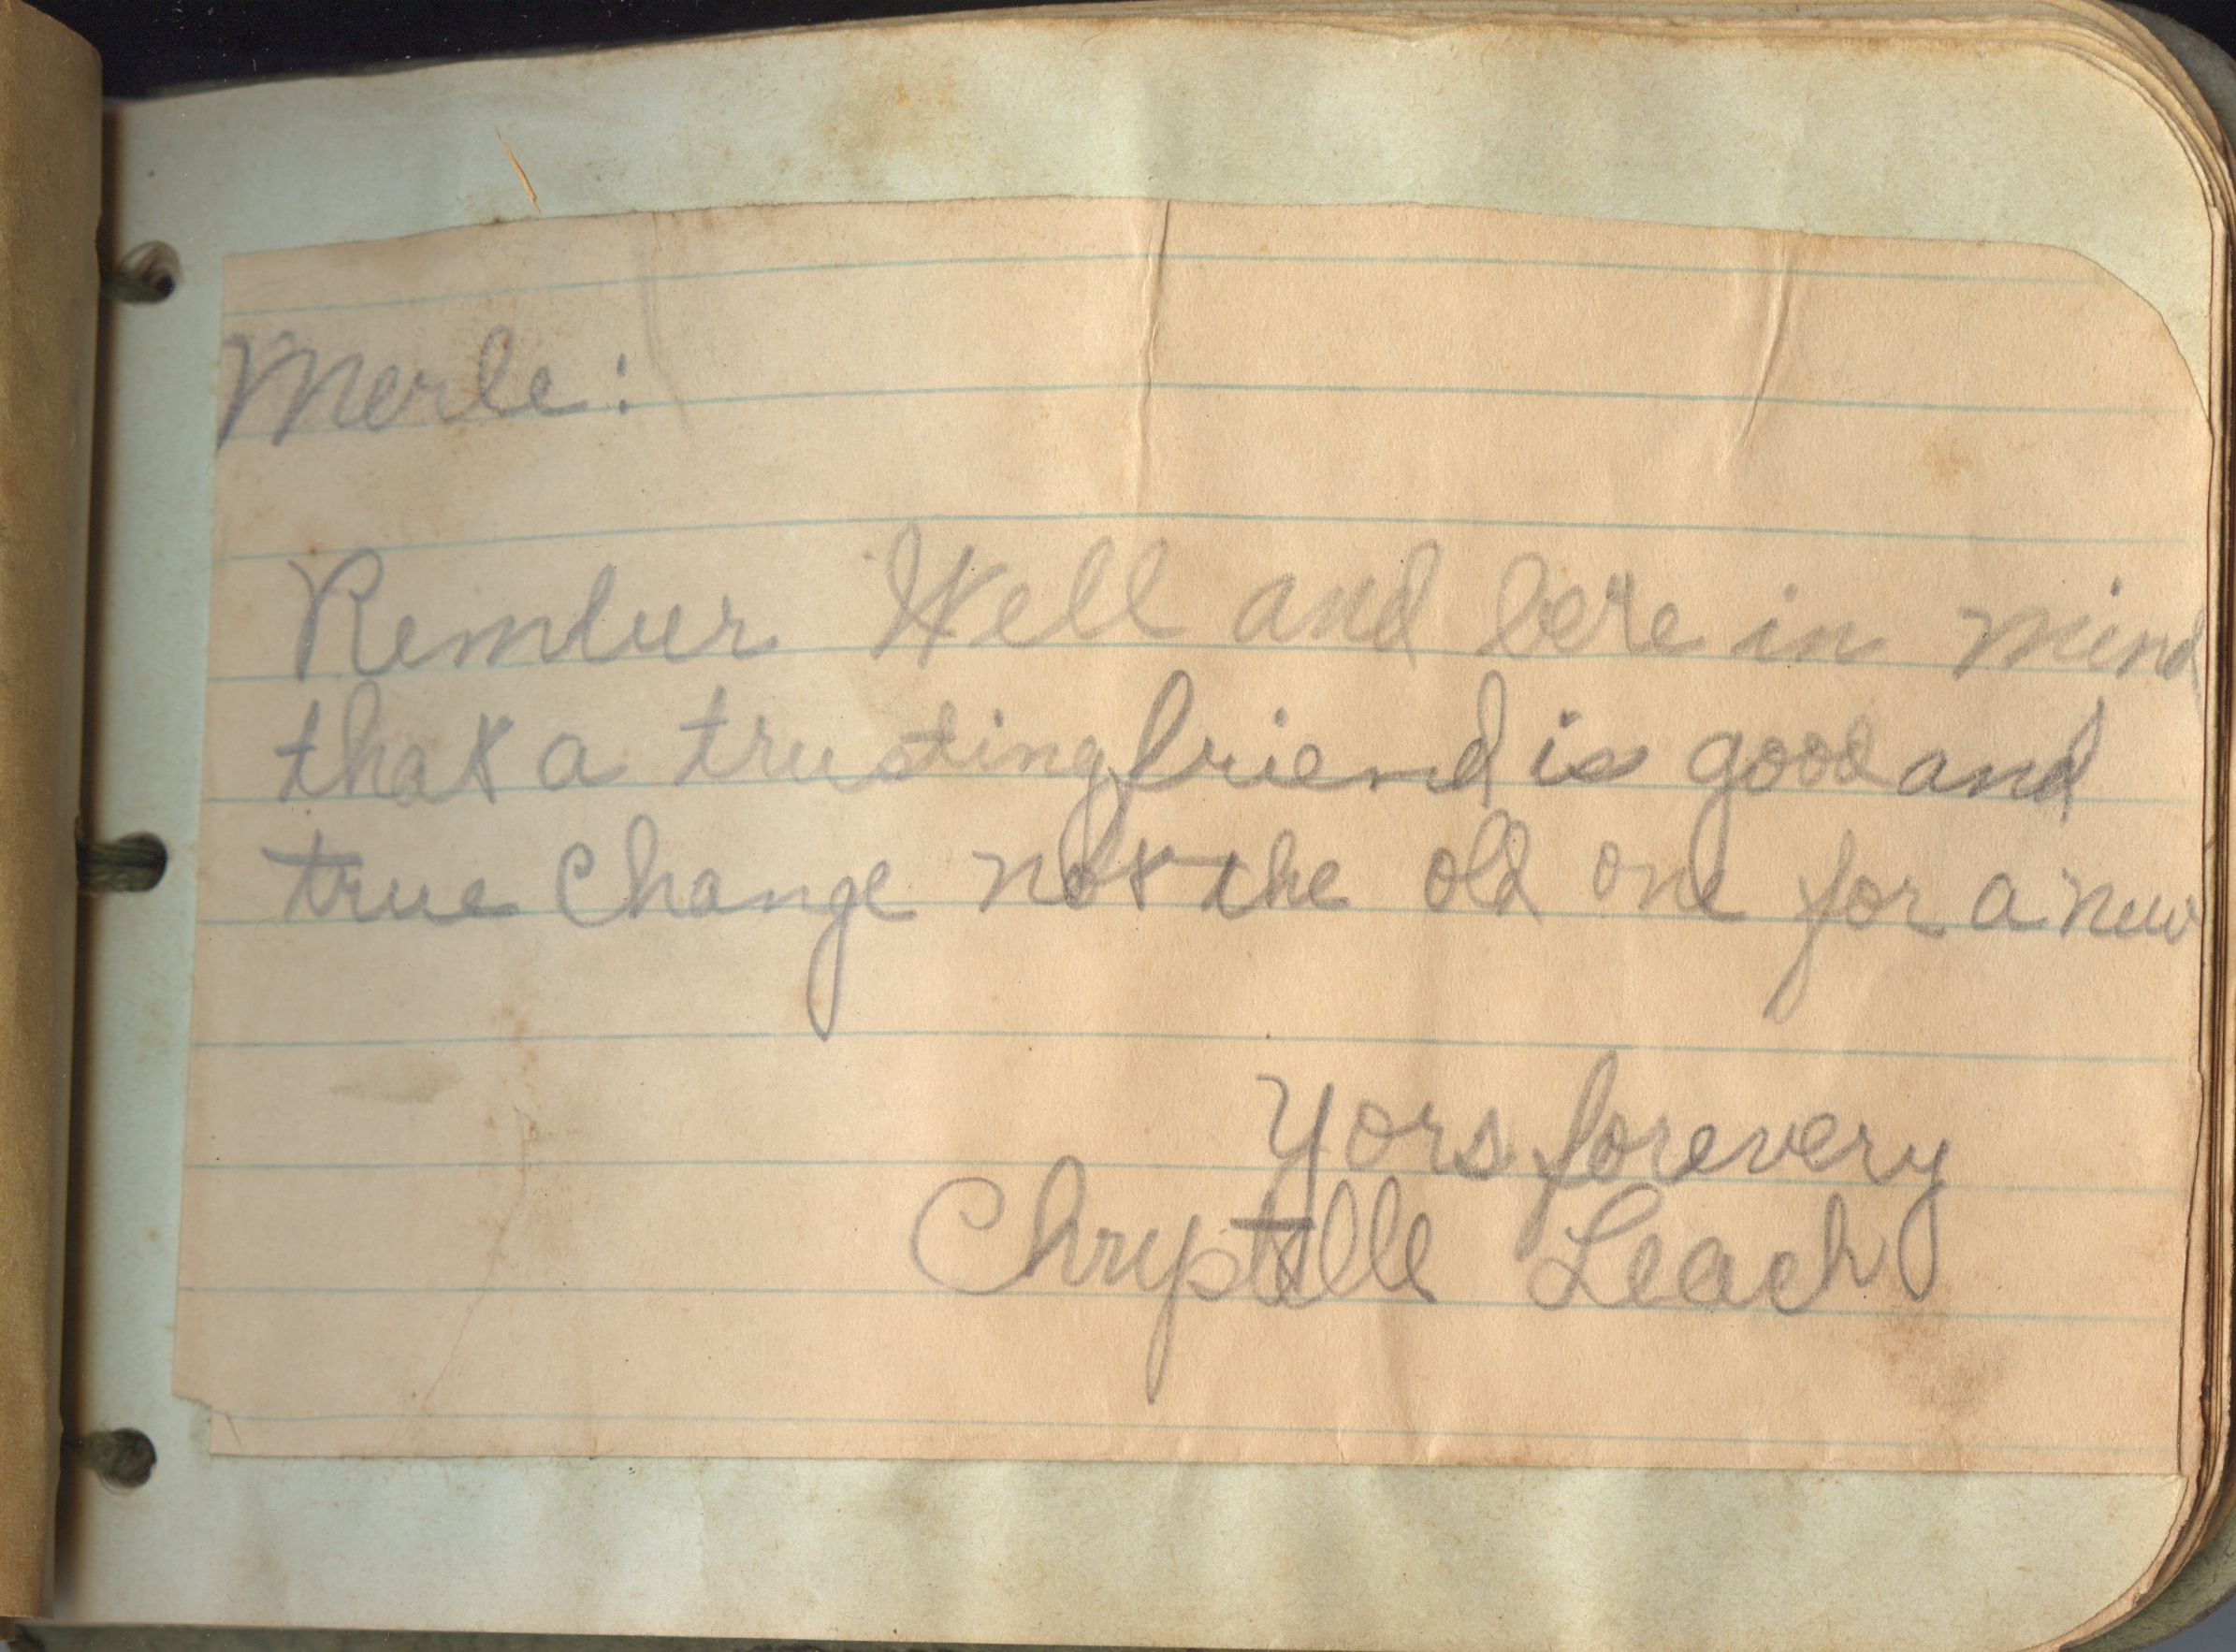 Merle:
Rember Well and bere in mind
that a trusting friend is good and
true Change not the old one for a new
Yors forevery
Chrystelle Leach